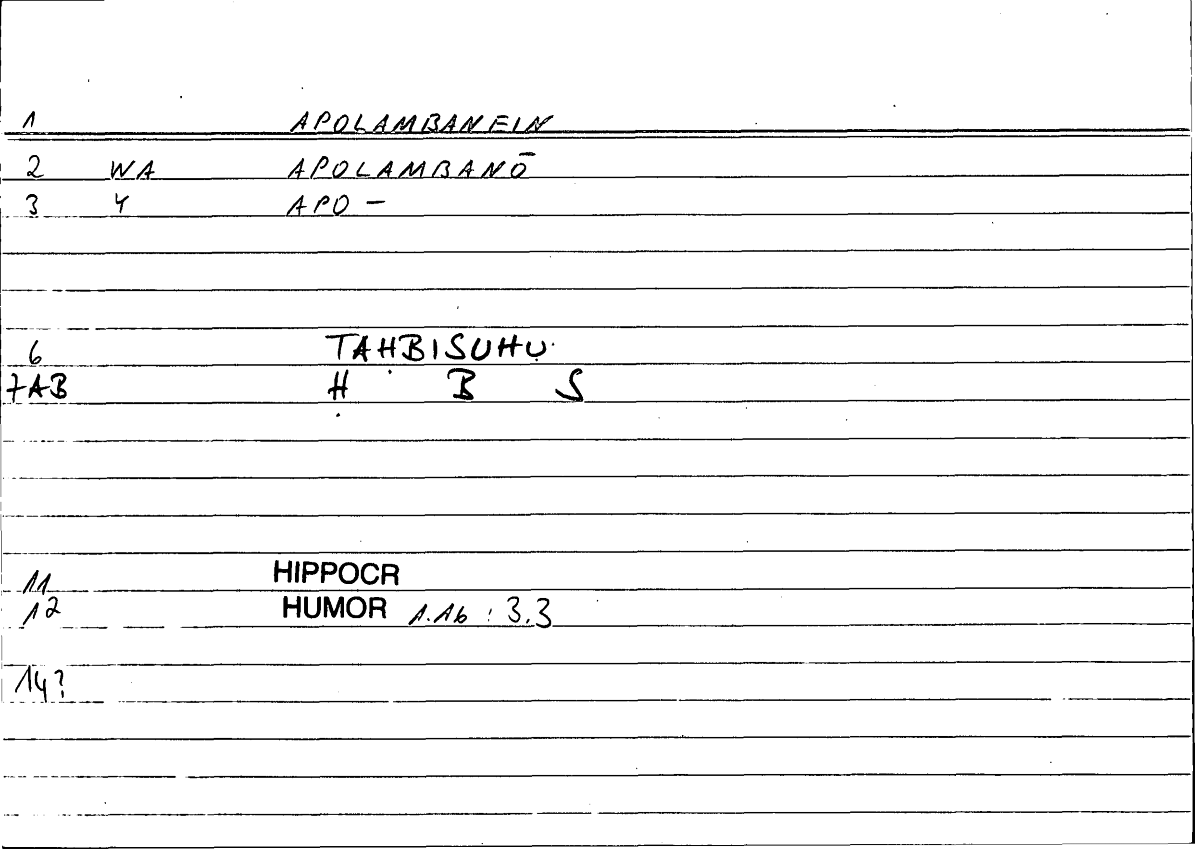 1 APOLAMBANEIN
2 WA APOLAMBANŌ
3 Y APO –
6 TAHBISUHU
7AB Ḥ B S
11 HIPPOCR
12 HUMOR 1.16 : 3.3
14?